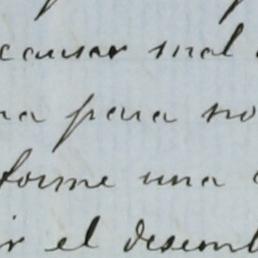 causar mal
na para no
forme una
ir el desem